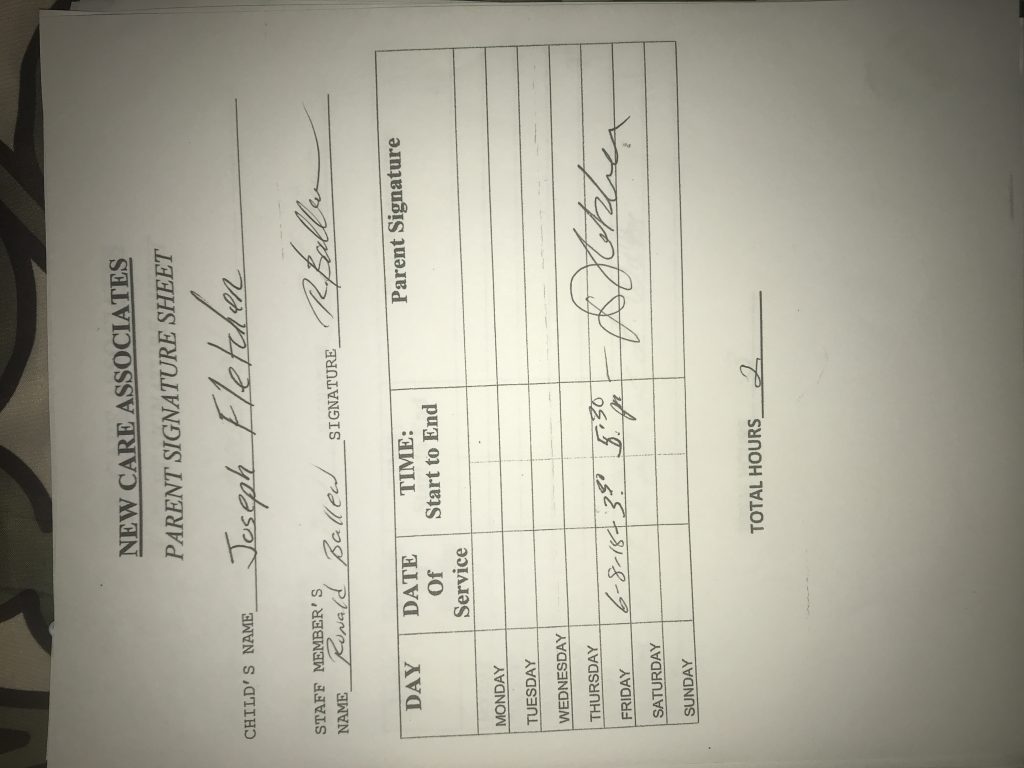 NEW CARE ASSOCIATES
PARENT SIGNATURE SHEET
CHILD'S NAME Joseph Fletcher
STAFF MEMBER'S
NAME Ronald Ballew SIGNATURE R Ballew
DAY DATE Of Service TIME: Start to End Parent Signature
MONDAY
TUESDAY
WEDNESDAY
THURSDAY
FRIDAY 6-8-18- 3:30 5:30 pm
SATURDAY
SUNDAY
TOTAL HOURS 2